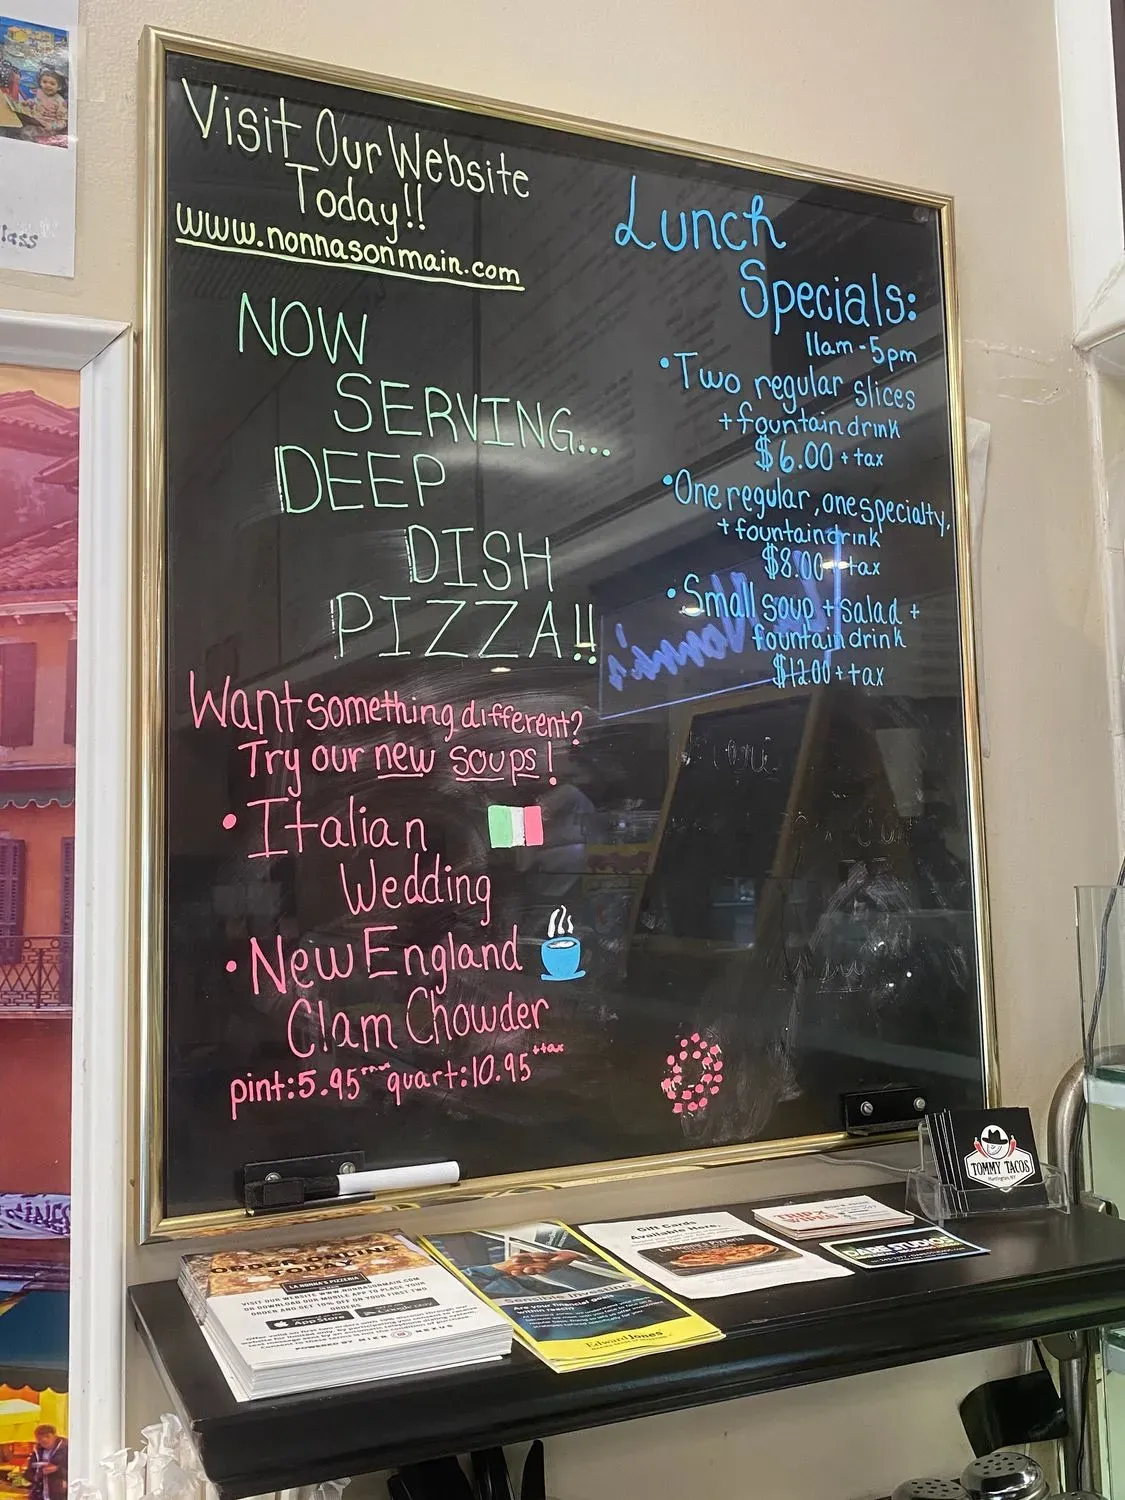 Visit Our Website
Today!!
www.nonnasonmain.com
NOW
SERVING...
DEEP
DISH
PIZZA!!
Want something different?
Try our new soups!
• Italian
Wedding
• New England
Clam Chowder
pint: 5.95 +tax quart: 10.95 +tax
Lunch
Specials:
11am-5pm
• Two regular slices
+ fountain drink
$6.00 + tax
• One regular, one specialty,
+ fountain drink
$8.00 + tax
• Small soup + salad +
fountain drink
$12.00 + tax
Nonna's
lass
ORDER ONLINE
TODAY
LA NONNA'S PIZZERIA
VISIT OUR WEBSITE WWW.NONNASONMAIN.COM
OR DOWNLOAD OUR MOBILE APP TO PLACE YOUR
ORDER AND GET 10% OFF ON YOUR FIRST TWO
ORDERS
App Store
Google Play
POWERED BY
Sensible Investing
Are your financial
within reach?
Edward Jones
Gift Cards
Available Here.
La Nonna's Pizzeria
TOMMY TACOS
Huntington, NY